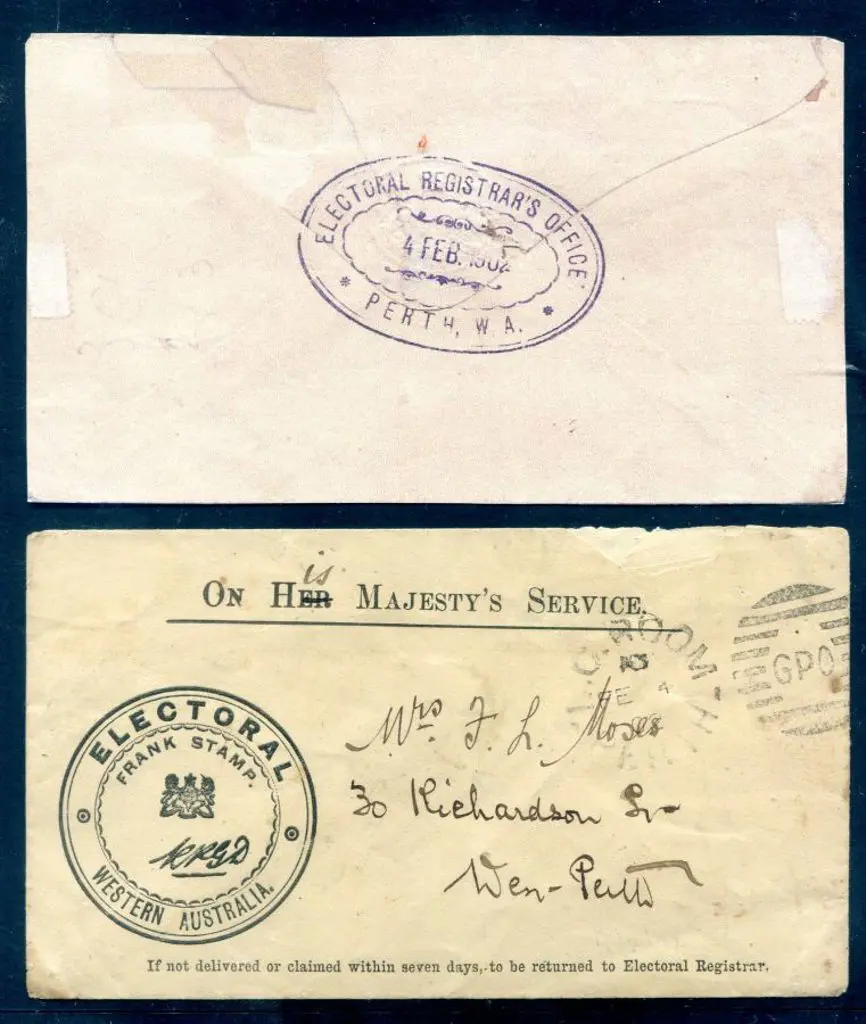 ELECTORAL REGISTRAR'S OFFICE
4 FEB. 1902
* PERTH, W.A. *
is
ON HER MAJESTY'S SERVICE.
G.P.O. ROOM
3
FE 4
PERTH
GPO
ELECTORAL
FRANK STAMP.
WESTERN AUSTRALIA.
Mrs. F. L. Moses
30 Richardson St
Wes- Perth
If not delivered or claimed within seven days, to be returned to Electoral Registrar.